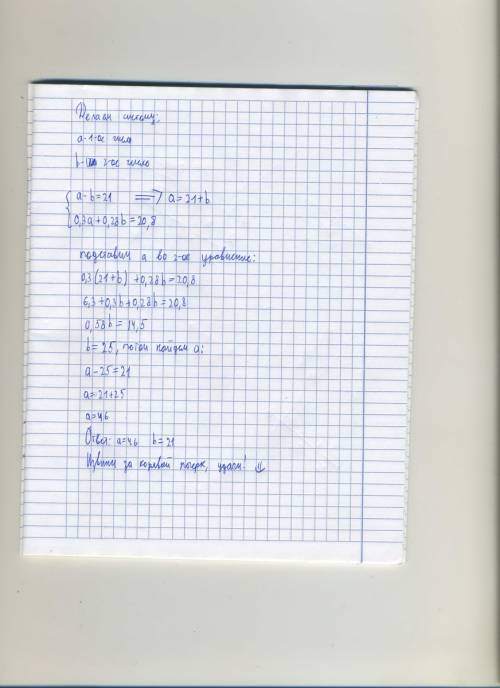 Делаем систему:
a-1-ое число
b- 2-ое число
a-b=21 => a=21+b
0,3a+0,28b=20,8
подставим a во 2-ое уравнение:
0,3(21+b)+0,28b=20,8
6,3+0,3b+0,28b=20,8
0,58b=14,5
b=25, потом найдем a:
a-25=21
a=21+25
a=46
Ответ: a=46 b=21
Извини за корявый почерк, удачи!